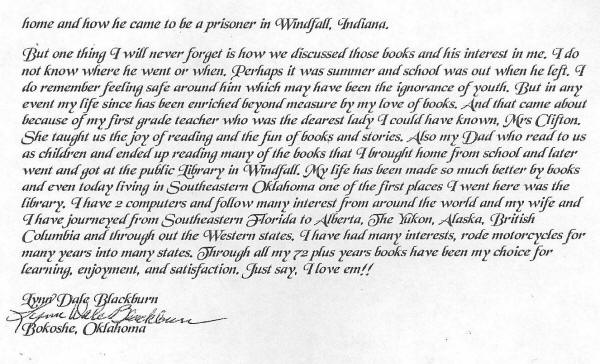 home and how he came to be a prisoner in Windfall, Indiana.
But one thing I will never forget is how we discussed those books and his interest in me. I do
not know where he went or when. Perhaps it was summer and school was out when he left. I
do remember feeling safe around him which may have been the ignorance of youth. But in any
event my life since has been enriched beyond measure by my love of books. And that came about
because of my first grade teacher who was the dearest lady I could have known, Mrs Clifton.
She taught us the joy of reading and the fun of books and stories. Also my Dad who read to us
as children and ended up reading many of the books that I brought home from school and later
went and got at the public Library in Windfall. My life has been made so much better by books
and even today living in Southeastern Oklahoma one of the first places I went here was the
library. I have 2 computers and follow many interest from around the world and my wife and
I have journeyed from Southeastern Florida to Alberta, The Yukon, Alaska, British
Columbia and through out the Western states. I have had many interests, rode motorcycles for
many years into many states. Through all my 72 plus years books have been my choice for
learning, enjoyment, and satisfaction. Just say, I love em!!
Lynn Dale Blackburn
Lynn Dale Blackburn
Bokoshe, Oklahoma